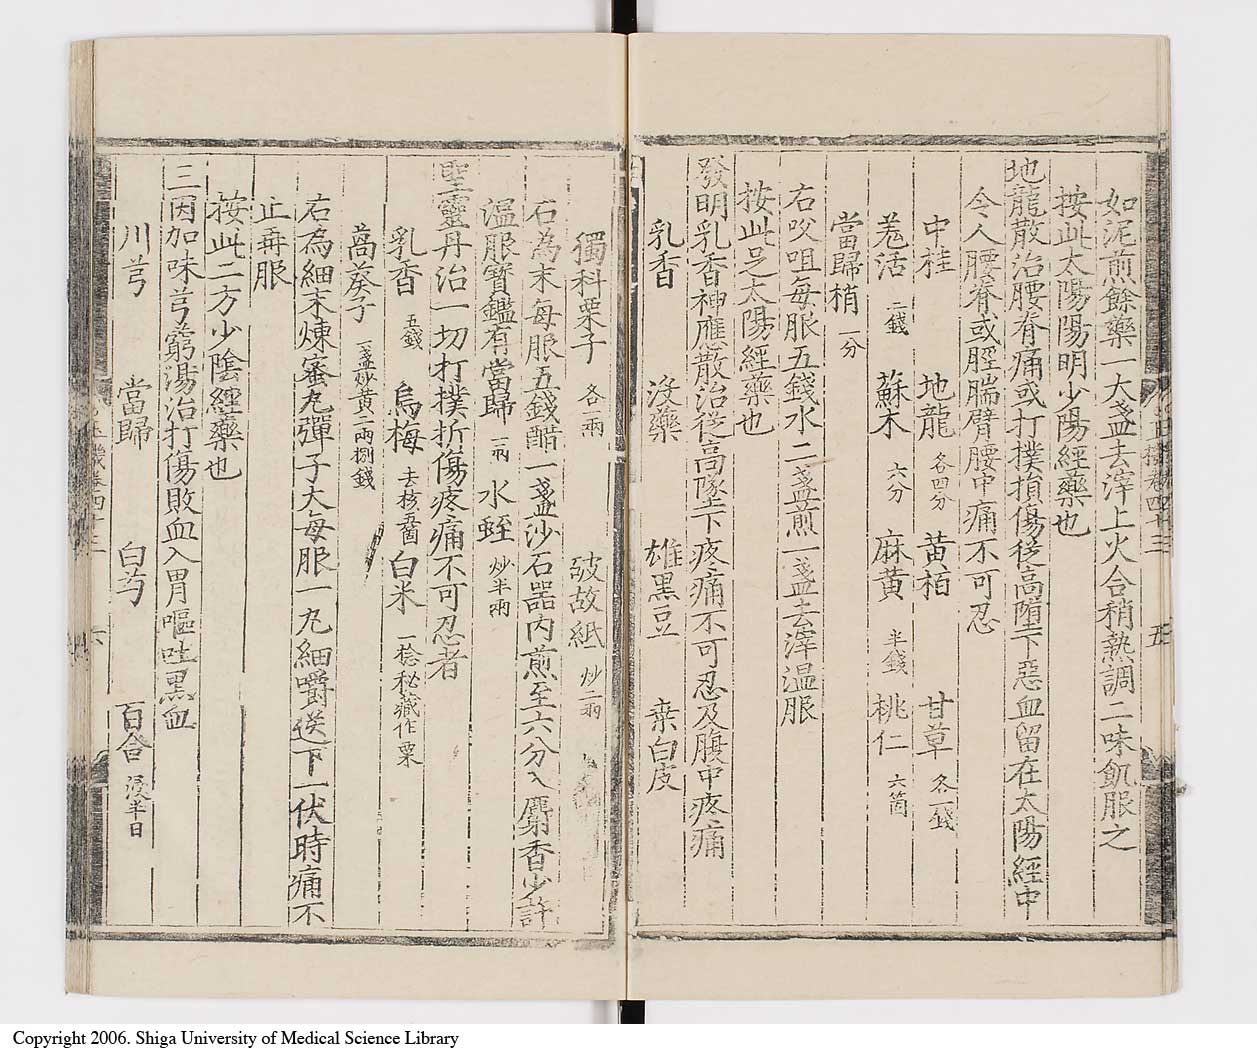 如泥煎餘藥一大盞去滓上火合稍熱調二味飢服之
按此太陽陽明少陽經藥也
地龍散治腰脊痛或打撲損傷從高墮下惡血留在太陽經中
令人腰脊或脛腨臂腰中痛不可忍
中桂 地龍各四分 黃栢 甘草各一錢
羗活二錢 蘇木六分 麻黃半錢 桃仁六箇
當歸梢一分
右㕮咀每服五錢水二盞煎一盞去滓温服
按此足太陽經藥也
發明乳香神應散治從高墜下疼痛不可忍及腹中疼痛
乳香 没藥 雄黑豆 桒白皮
獨科栗子各一兩 破故紙炒二兩
右為末每服五錢醋一盞沙石器内煎至六分入麝香少許
温服寳鑑有當歸一兩 水蛭炒半兩
聖靈丹治一切打撲折傷疼痛不可忍者
乳香五錢 烏梅去核五箇 白米一稔秘藏作粟
萵苣子一盞炒黃一兩捌錢
右為細末煉蜜丸彈子大每服一丸細嚼送下一伏時痛不
止再服
按此二方少陰經藥也
三因加味芎藭湯治打傷敗血入胃嘔吐黑血
川芎 當歸 白芍 百合浸半日
五
六
Copyright 2006. Shiga University of Medical Science Library